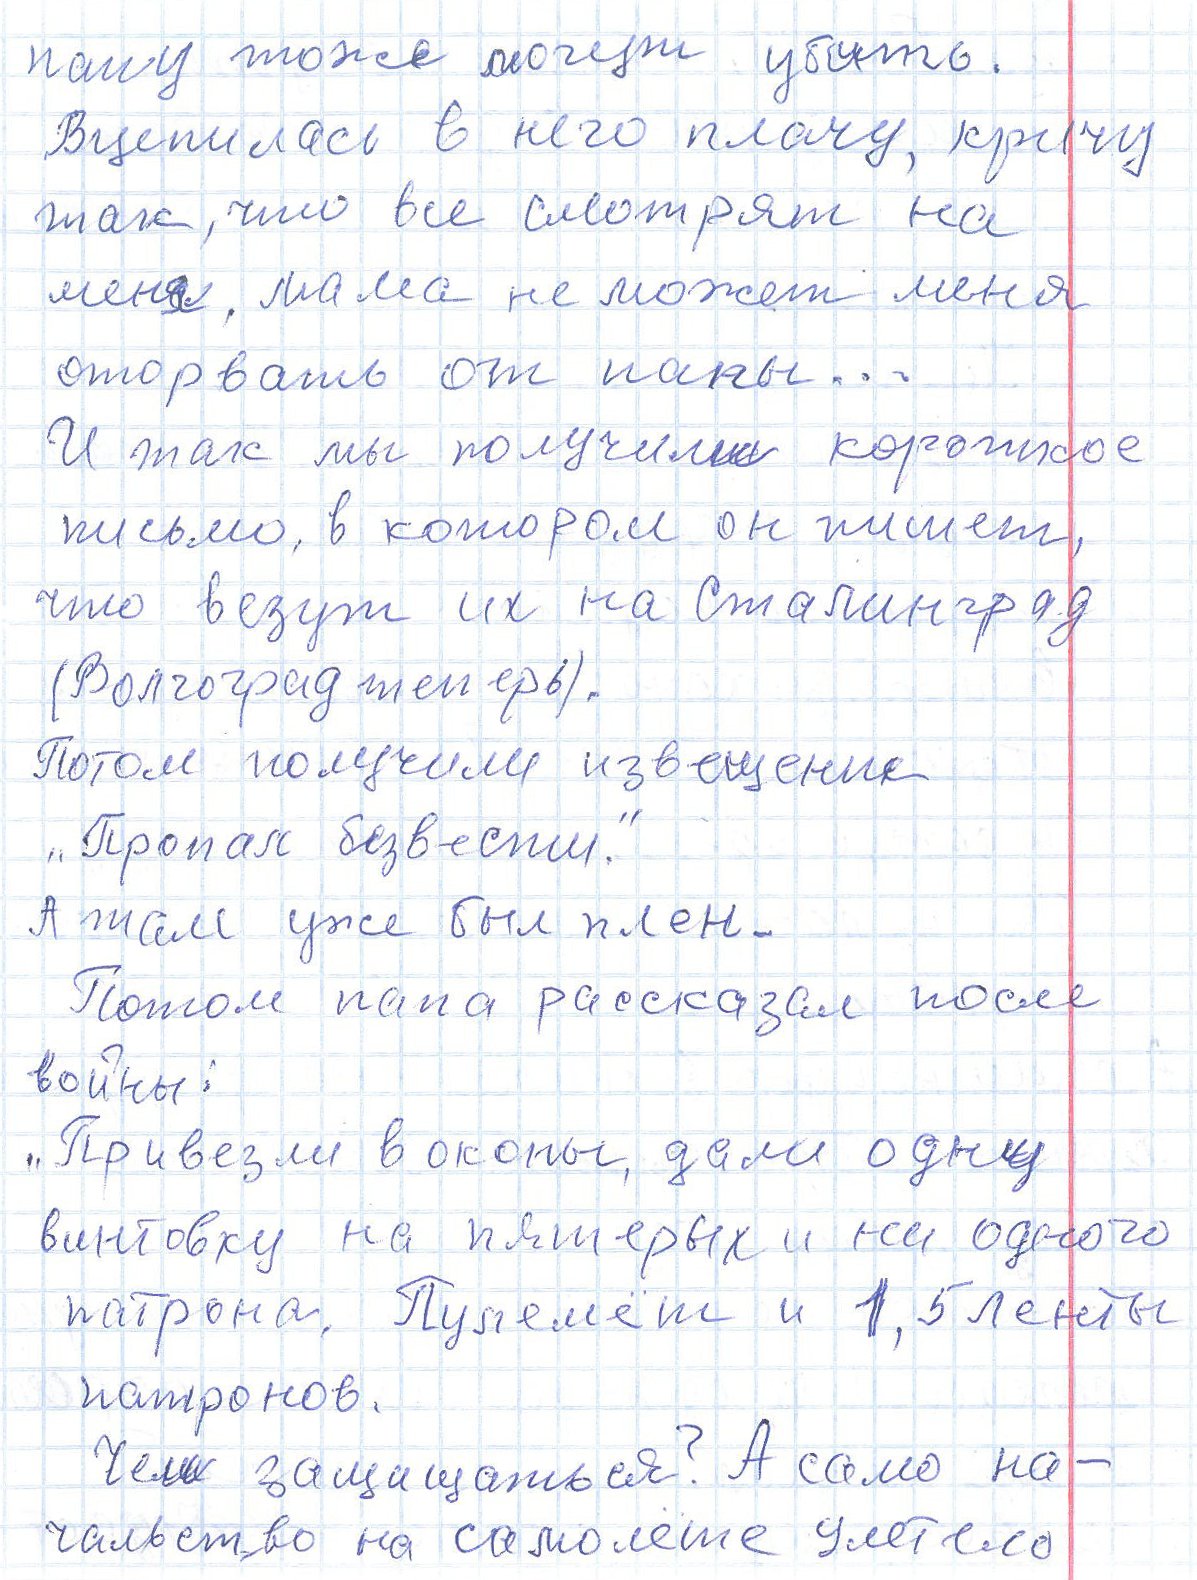 папу тоже могут убить.
Вцепилась в него плачу, кричу
так, что все смотрят на
меня, мама не может меня
оторвать от папы...
И так мы получили короткое
письмо, в котором он пишет,
что везут их на Сталинград
(Волгоград теперь).
Потом получили извещение
„Пропал безвести."
А там уже был плен.
Потом папа рассказал после
войны:
„Привезли в окопы, дали одну
винтовку на пятерых и ни одного
патрона. Пулемёт и 1,5 ленты
патронов.
Чем защищаться? А само на-
чальство на самолёте улетело